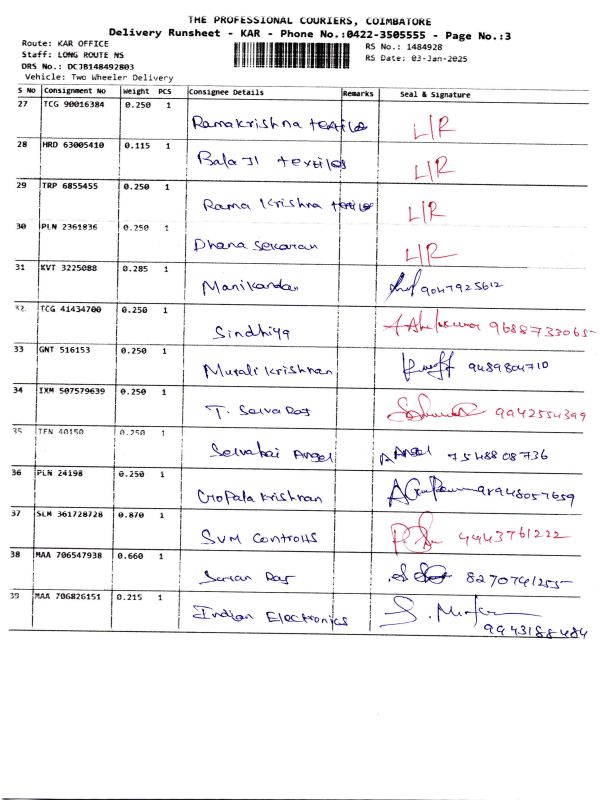 THE PROFESSIONAL COURIERS, COIMBATORE
Delivery Runsheet - KAR - Phone No.:0422-3505555 - Page No.:3
Route: KAR OFFICE
Staff: LONG ROUTE NS
DRS No.: DCJB148492803
Vehicle: Two Wheeler Delivery
RS No.: 1484928
RS Date: 03-Jan-2025
S No Consignment No Weight PCS Consignee Details Remarks Seal & Signature
27 TCG 90016384 0.250 1 Ramakrishna textiles L/R
28 HRD 63005410 0.115 1 Balaji textiles L/R
29 TRP 6855455 0.250 1 Rama Krishna textile L/R
30 PLN 2361836 0.250 1 Dhana sekaran L/R
31 KVT 3225088 0.285 1 Manikandan 9047925612
32 TCG 41434700 0.250 1 Sindhiya 9688733065
33 GNT 516153 0.250 1 Murali Krishnan 9489804710
34 IXM 507579639 0.250 1 T. Selva Raj 9942554399
35 TEN 40150 0.250 1 Selvabai Angel Angel 7548808736
36 PLN 24198 0.250 1 Gopala Krishnan 98948057659
37 SLM 361728728 0.870 1 SVM Controlls 9443761222
38 MAA 706547938 0.660 1 Saran Raj 8270741255
39 MAA 706826151 0.215 1 Indian Electronics 9943188484